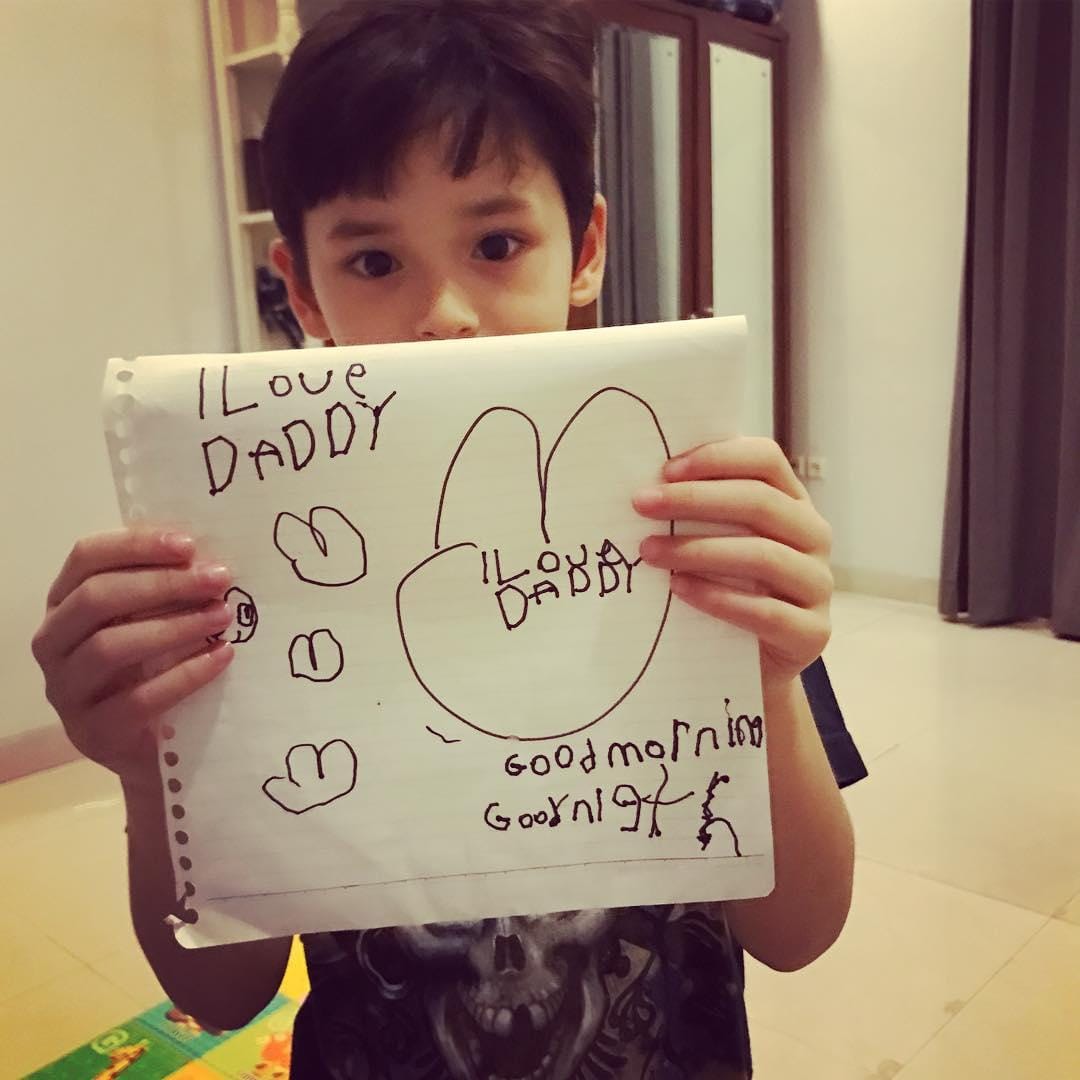 I Love
DADDY
I Love
DADDY
Goodmorning
Goodnigt h